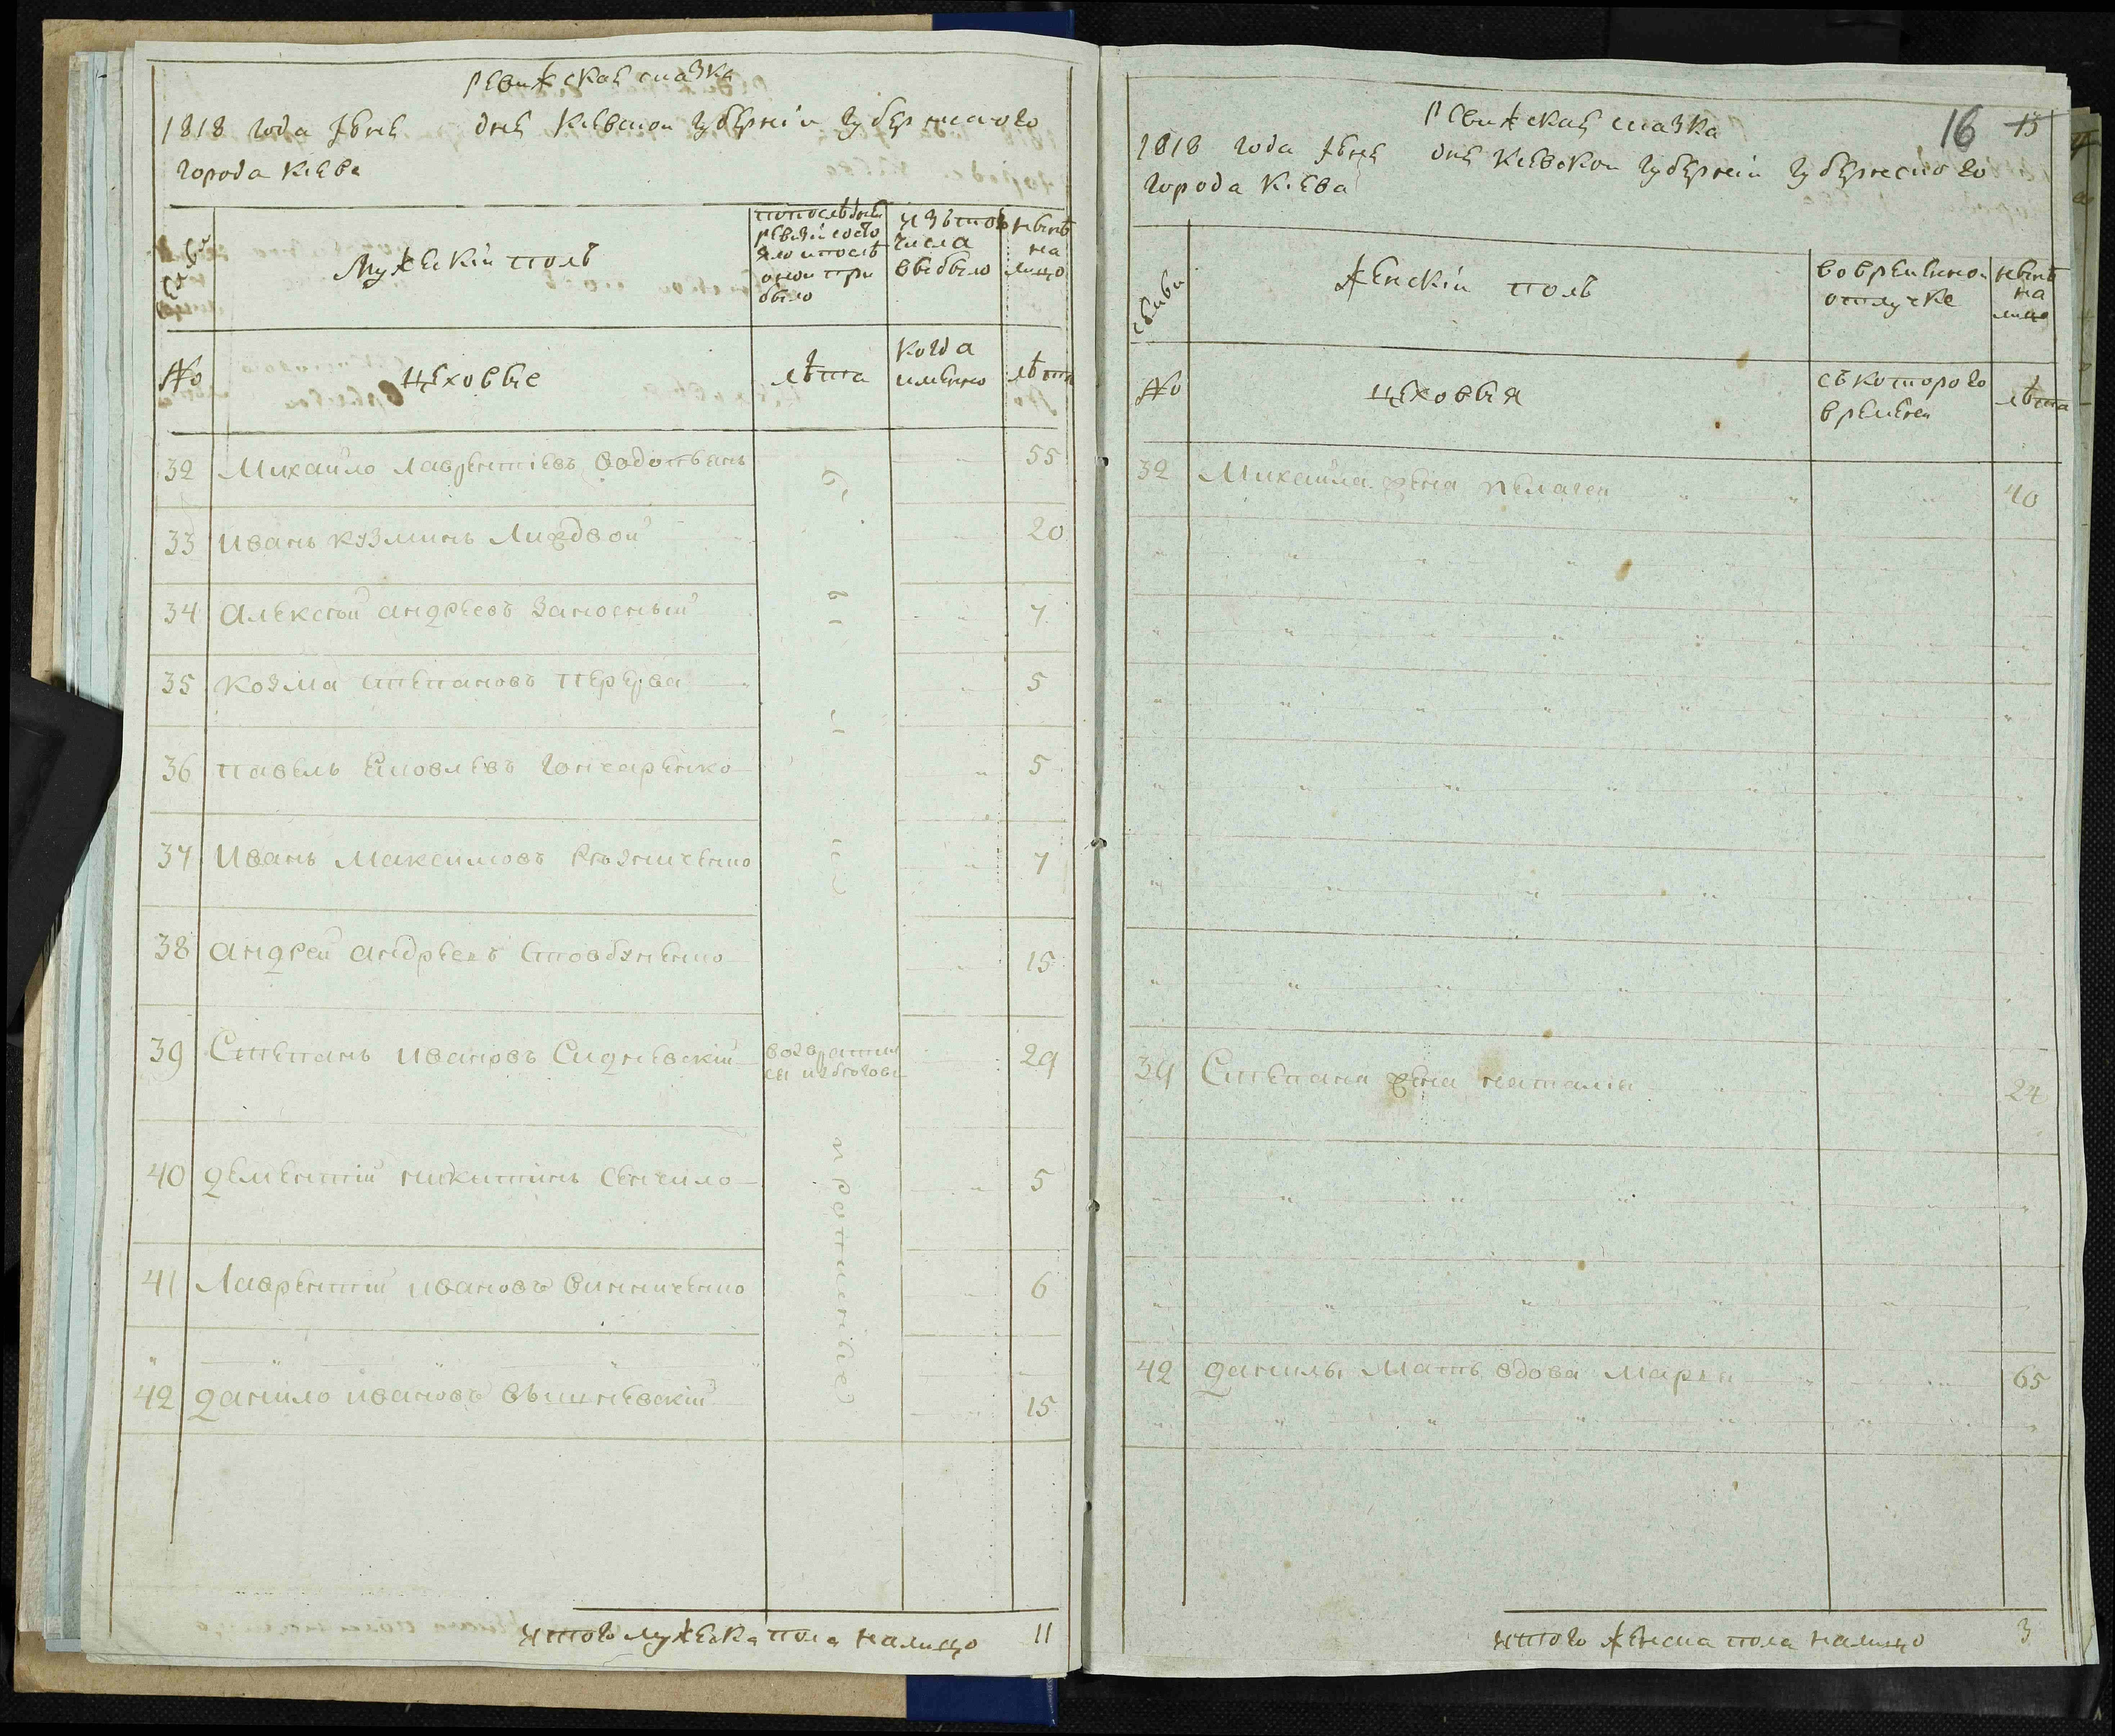 Ревижская сказка
1818 года Июня дня Киевской Губерніи Губернского
города Киева
Мужескій полъ
попоследней
ревизіи состо
яло и после
оной при
было
изътого
числа
выбыло
ныне
на
лицо
№
цеховые
лѣта
когда
имянно
лѣта
32 Михайло Лаврентіевъ 55
33 Иванъ Кузминъ 20
34 Алексей Андреевъ Заносный 7
35 Козма Степановъ Перерва 5
36 Павелъ Яковлевъ Гончаренко 5
37 Иванъ Максимовъ Резниченко 7
38 Андрей Андреевъ Стовбуненко 15
39 Степанъ Ивановъ Сидневскій возврати 29
40 Дементій Никитинъ Сенчило 5
41 Лаврентій Ивановъ Винниченко 6
42 Данило Ивановъ Вышневскій 15
итого мужеска пола налицо 11
Ревижская сказка
16 15
1818 года Июня дня Киевской Губерніи Губернского
города Киева
Женскій полъ
во временной
отлучке
ныне
на
лицо
№
цеховыя
съ которого
времени
лѣта
32 Михайла жена Пелагея 40
39 Степана жена Наталія 24
42 Данилы мать вдова Марья 65
итого женска пола налицо 3